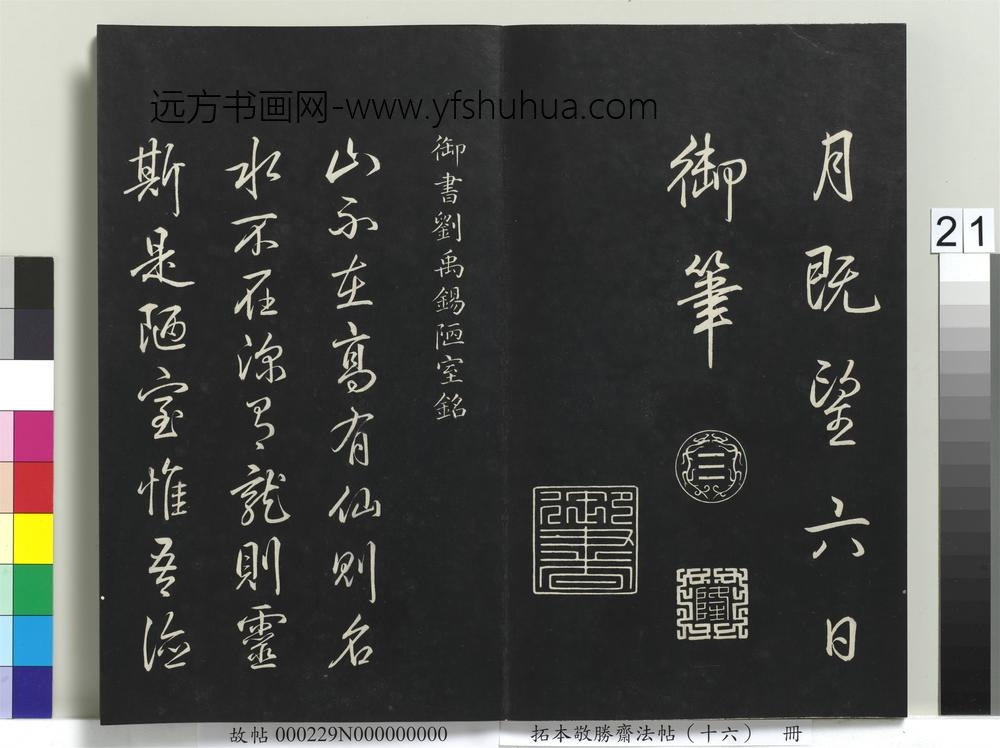 远方书画网-www.yfshuhua.com
月既望六日
御筆
隆
御書
御書劉禹錫陋室銘
山不在高有仙則名
水不在深有龍則靈
斯是陋室惟吾德
21
故帖 000229N000000000
拓本敬勝齋法帖（十六） 冊